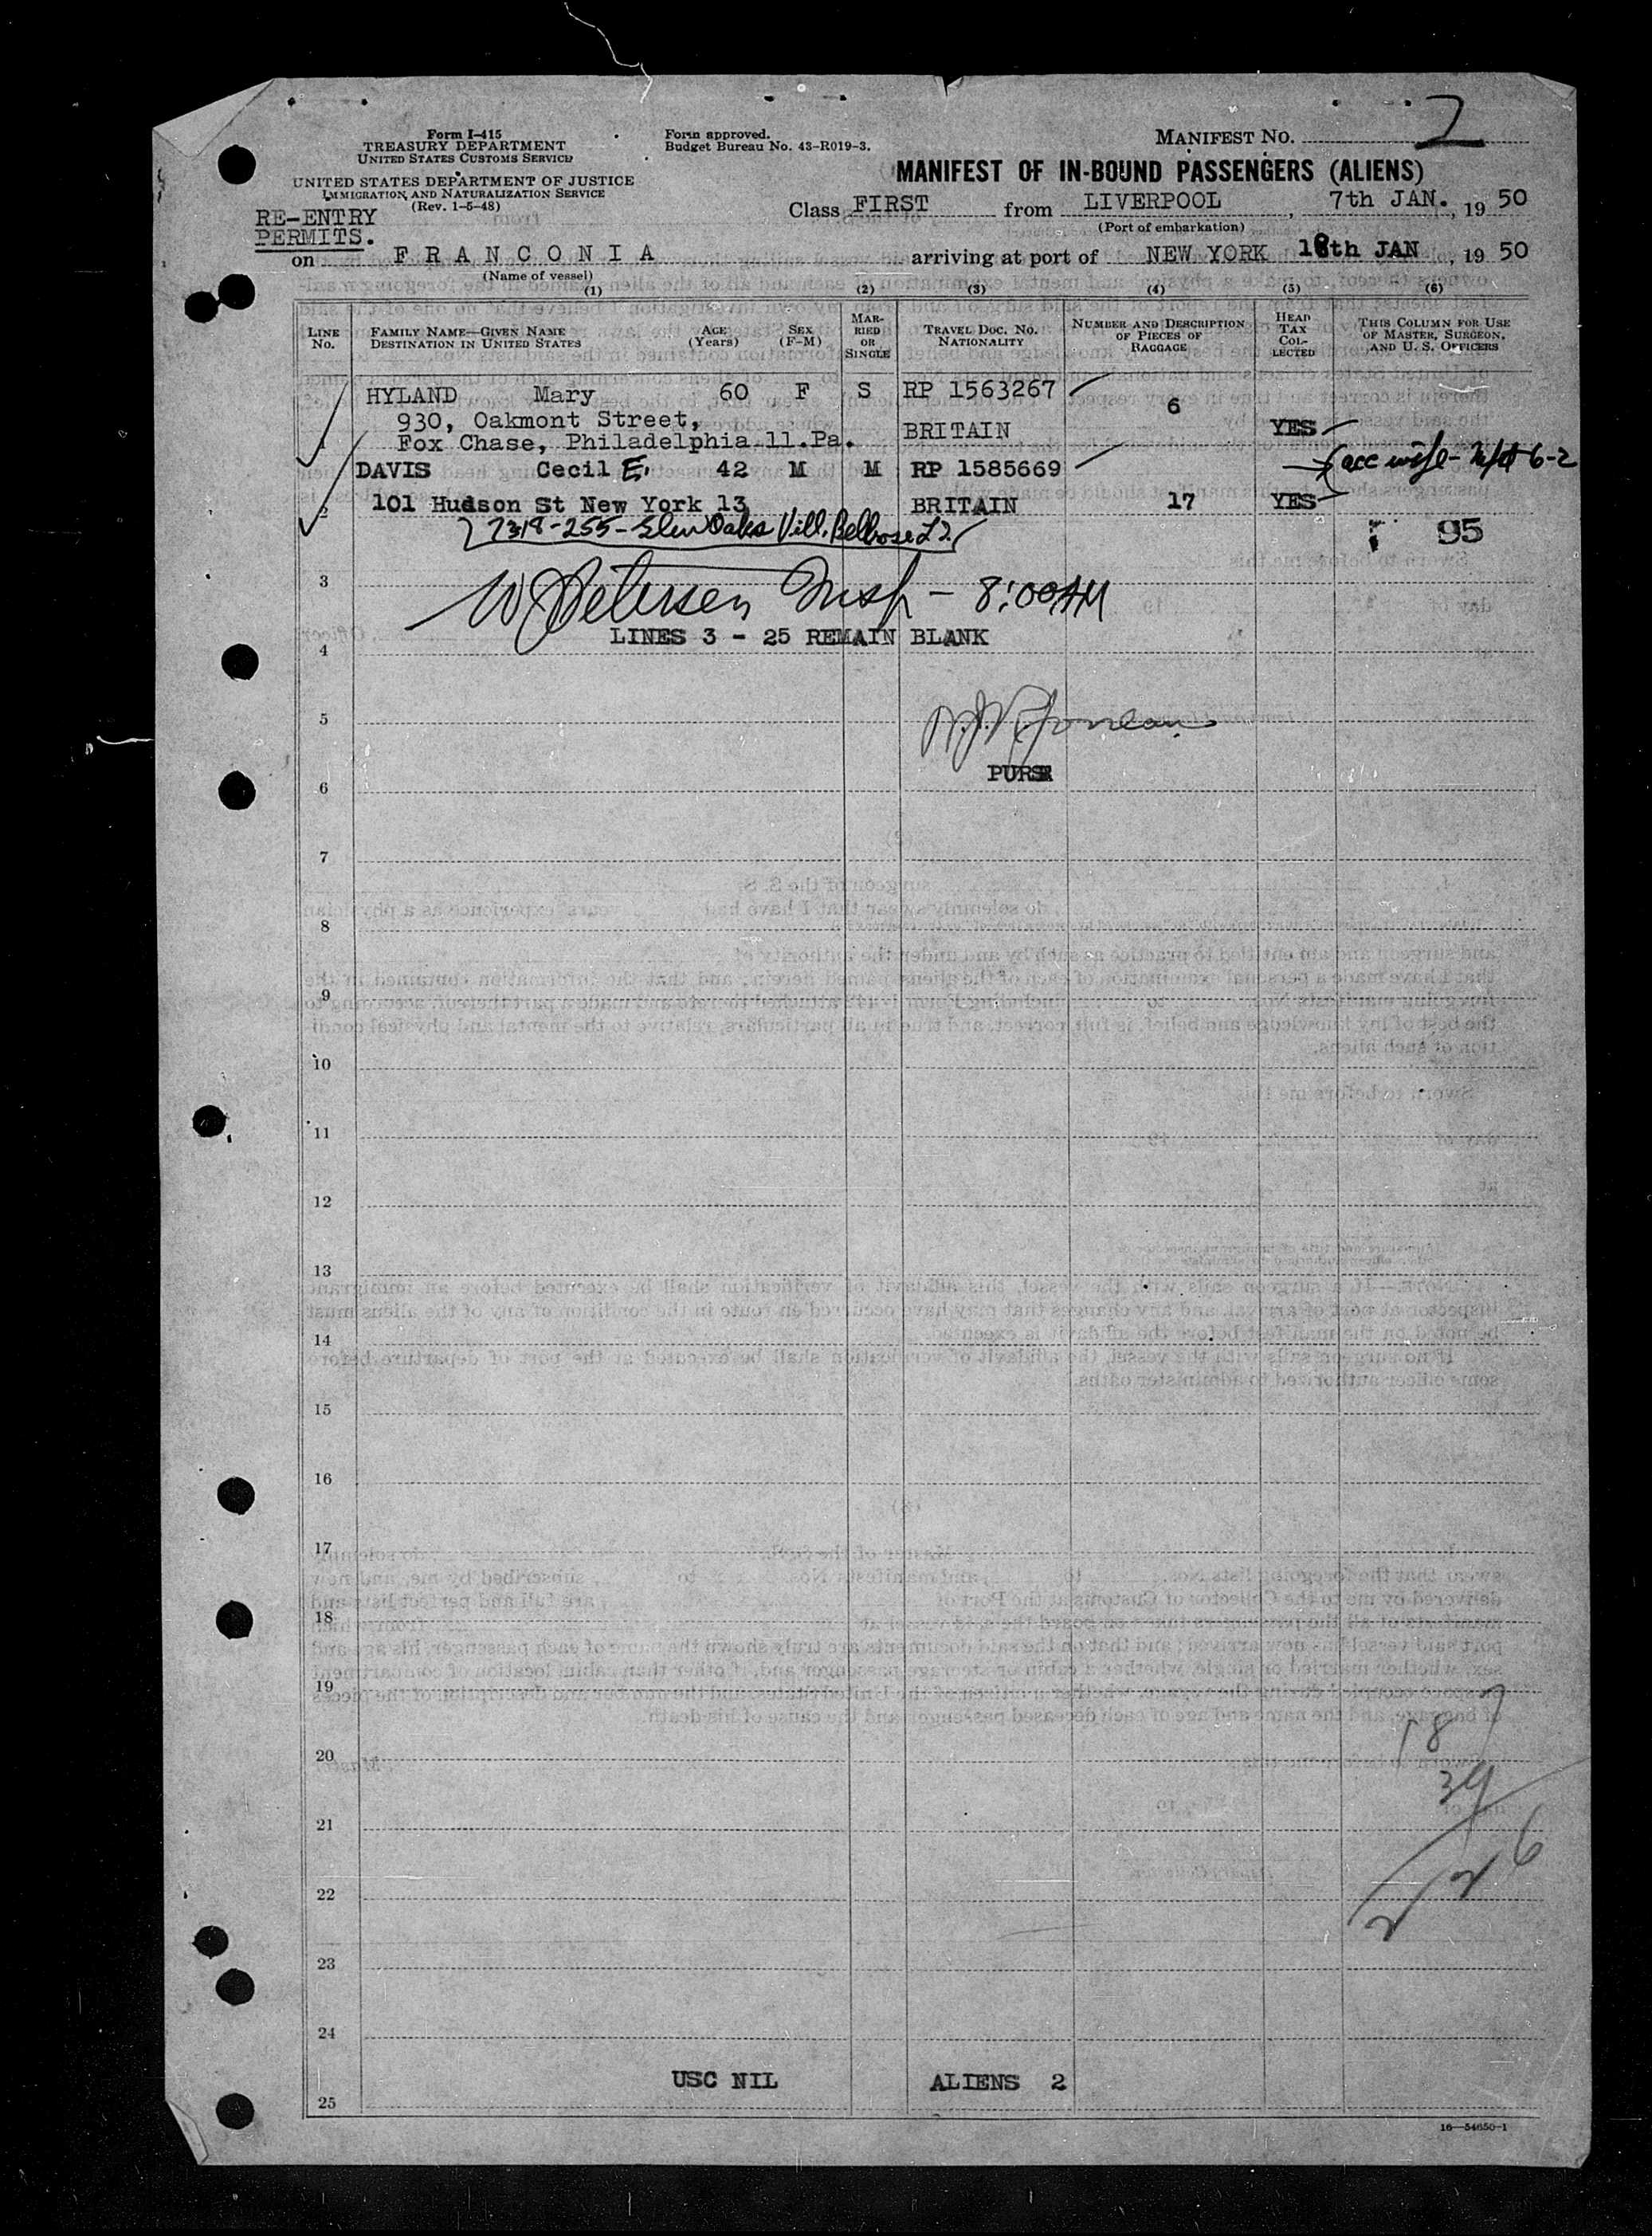 2
Form I-415
TREASURY DEPARTMENT
UNITED STATES CUSTOMS SERVICE
UNITED STATES DEPARTMENT OF JUSTICE
IMMIGRATION AND NATURALIZATION SERVICE
(Rev. 1-5-48)
Form approved.
Budget Bureau No. 43-R019-3.
MANIFEST NO.
MANIFEST OF IN-BOUND PASSENGERS (ALIENS)
RE-ENTRY
PERMITS.
Class FIRST from LIVERPOOL, 7th JAN., 19 50
(Port of embarkation)
on FRANCONIA arriving at port of NEW YORK 18th JAN, 19 50
(Name of vessel)
(1) (2) (3) (4) (5) (6)
LINE No.
FAMILY NAME—GIVEN NAME
DESTINATION IN UNITED STATES
AGE (Years)
SEX (F-M)
MARRIED OR SINGLE
TRAVEL DOC. NO.
NATIONALITY
NUMBER AND DESCRIPTION OF PIECES OF BAGGAGE
HEAD TAX COLLECTED
THIS COLUMN FOR USE OF MASTER, SURGEON, AND U. S. OFFICERS
HYLAND Mary 60 F S RP 1563267 6
930, Oakmont Street, BRITAIN YES
1 Fox Chase, Philadelphia 11.Pa.
DAVIS Cecil E. 42 M M RP 1585669 acc wife - 6-2
101 Hudson St New York 13 BRITAIN 17 YES
2
7318-255- Glen Oaks Vill. Bellrose L.I.
95
W Petersen Insp - 8:00AM
3
LINES 3 - 25 REMAIN BLANK
4
5
PURSR
6
7
8
9
10
11
12
13
14
15
16
17
18
19
187
20
39
21
6
22
23
24
USC NIL ALIENS 2
25
16—54650-1